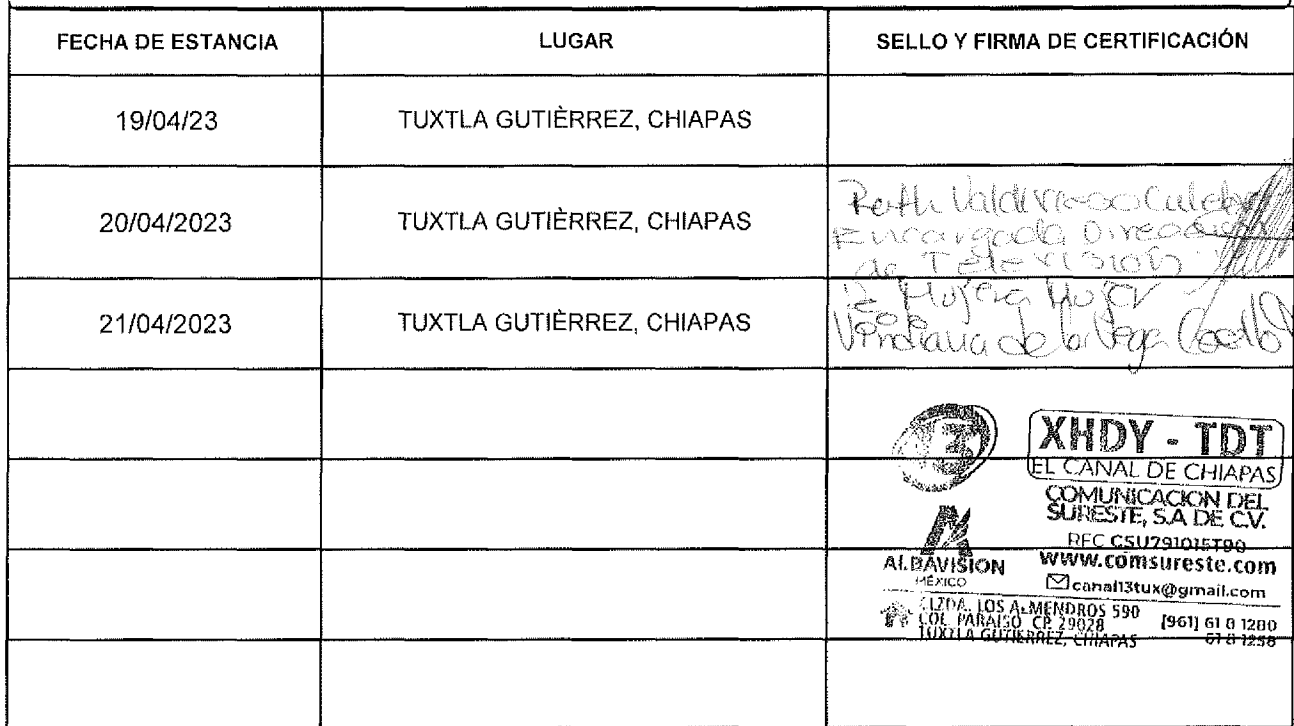 FECHA DE ESTANCIA LUGAR SELLO Y FIRMA DE CERTIFICACIÓN
19/04/23 TUXTLA GUTIÈRREZ, CHIAPAS
20/04/2023 TUXTLA GUTIÈRREZ, CHIAPAS
Encargada Dirección
de Televisión
21/04/2023 TUXTLA GUTIÈRREZ, CHIAPAS
Mujer a Mujer
de la Vega Coello
13
XHDY - TDT
EL CANAL DE CHIAPAS
COMUNICACION DEL
SURESTE, S.A DE C.V.
RFC CSU791015T90
ALBAVISION
MÉXICO
www.comsureste.com
canal13tux@gmail.com
CLZDA. LOS ALMENDROS 590
COL. PARAISO CP. 29028
TUXTLA GUTIERREZ, CHIAPAS
[961] 61 8 1280
61 8 1258